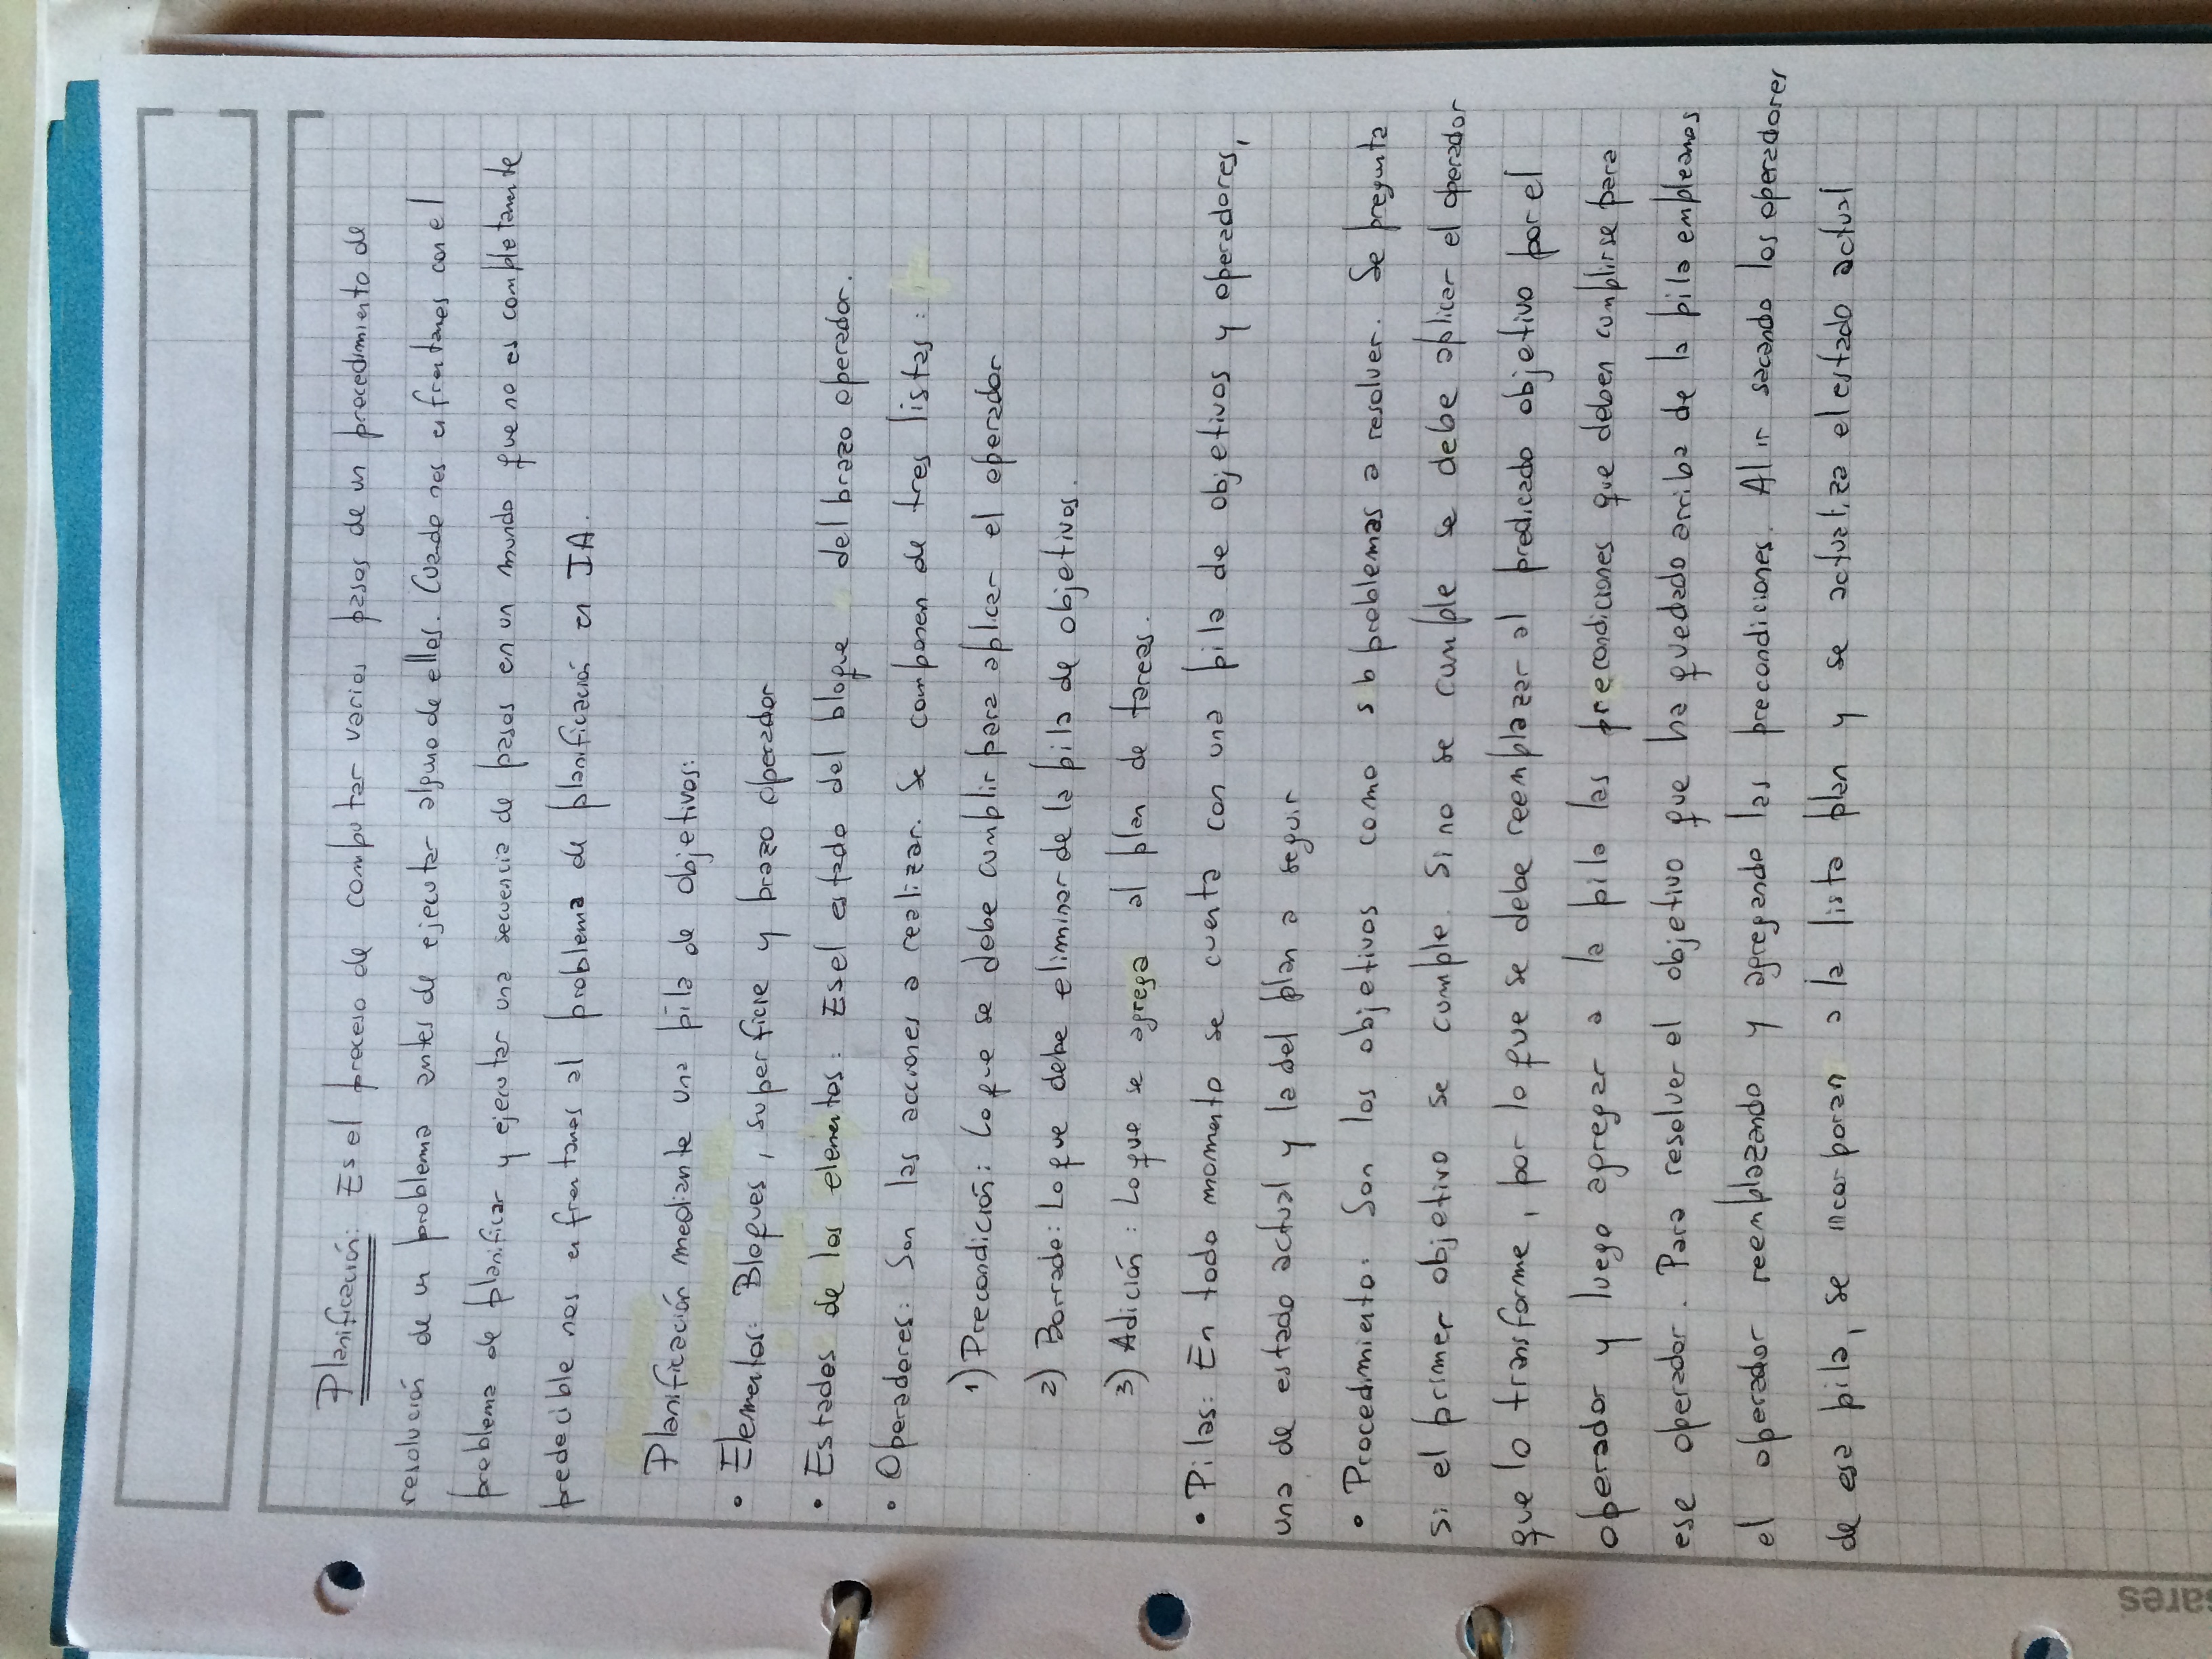 Planificación: Es el proceso de computar varios pasos de un procedimiento de
resolución de un problema antes de ejecutar alguno de ellos. Cuando nos enfrentamos con el
problema de planificar y ejecutar una secuencia de pasos en un mundo que no es completamente
predecible nos enfrentamos al problema de planificación en IA.
Planificación mediante una pila de objetivos:
• Elementos: Bloques, superficie y brazo operador
• Estados de los elementos: Es el estado del bloque del brazo operador.
• Operadores: Son las acciones a realizar. Se componen de tres listas:
1) Precondición: Lo que se debe cumplir para aplicar el operador
2) Borrado: Lo que debe eliminar de la pila de objetivos.
3) Adición: Lo que se agrega al plan de tareas.
• Pilas: En todo momento se cuenta con una pila de objetivos y operadores,
una de estado actual y la del plan a seguir
• Procedimiento: Son los objetivos como sb problemas a resolver. Se pregunta
si el primer objetivo se cumple. Si no se cumple se debe aplicar el operador
que lo transforme, por lo que se debe reemplazar al predicado objetivo por el
operador y luego agregar a la pila las precondiciones que deben cumplirse para
ese operador. Para resolver el objetivo que ha quedado arriba de la pila empleamos
el operador reemplazando y agregando las precondiciones. Al ir sacando los operadores
de esa pila, se incorporan a la lista plan y se actualiza el estado actual
ares